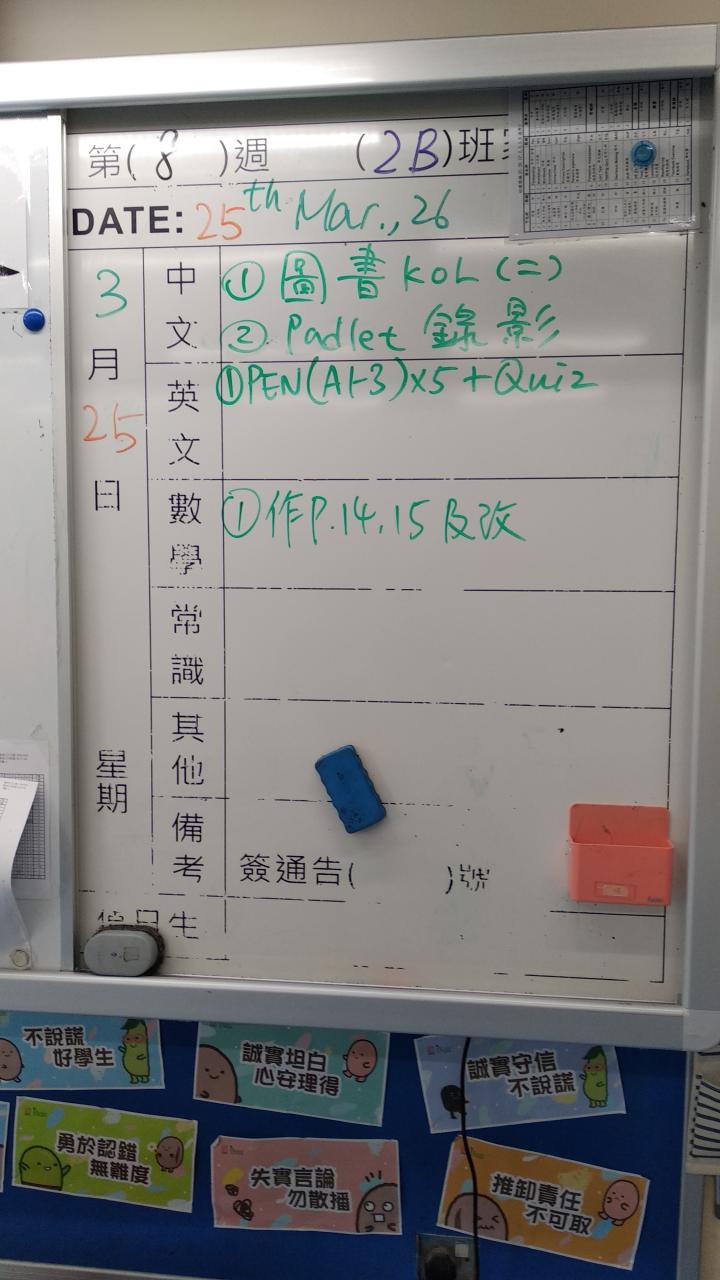 第( 8 )週 (2B)班
DATE: 25th Mar., 26
3月25日
星期
中文
① 圖書 KOL (二)
② Padlet 錄影
英文
① PEN(A1-3)×5 + Quiz
數學
① 作P.14, 15 及改
常識
其他
備考
簽通告( )號
值日生
不說謊
好學生
誠實坦白
心安理得
誠實守信
不說謊
勇於認錯
無難度
失實言論
勿散播
推卸責任
不可取